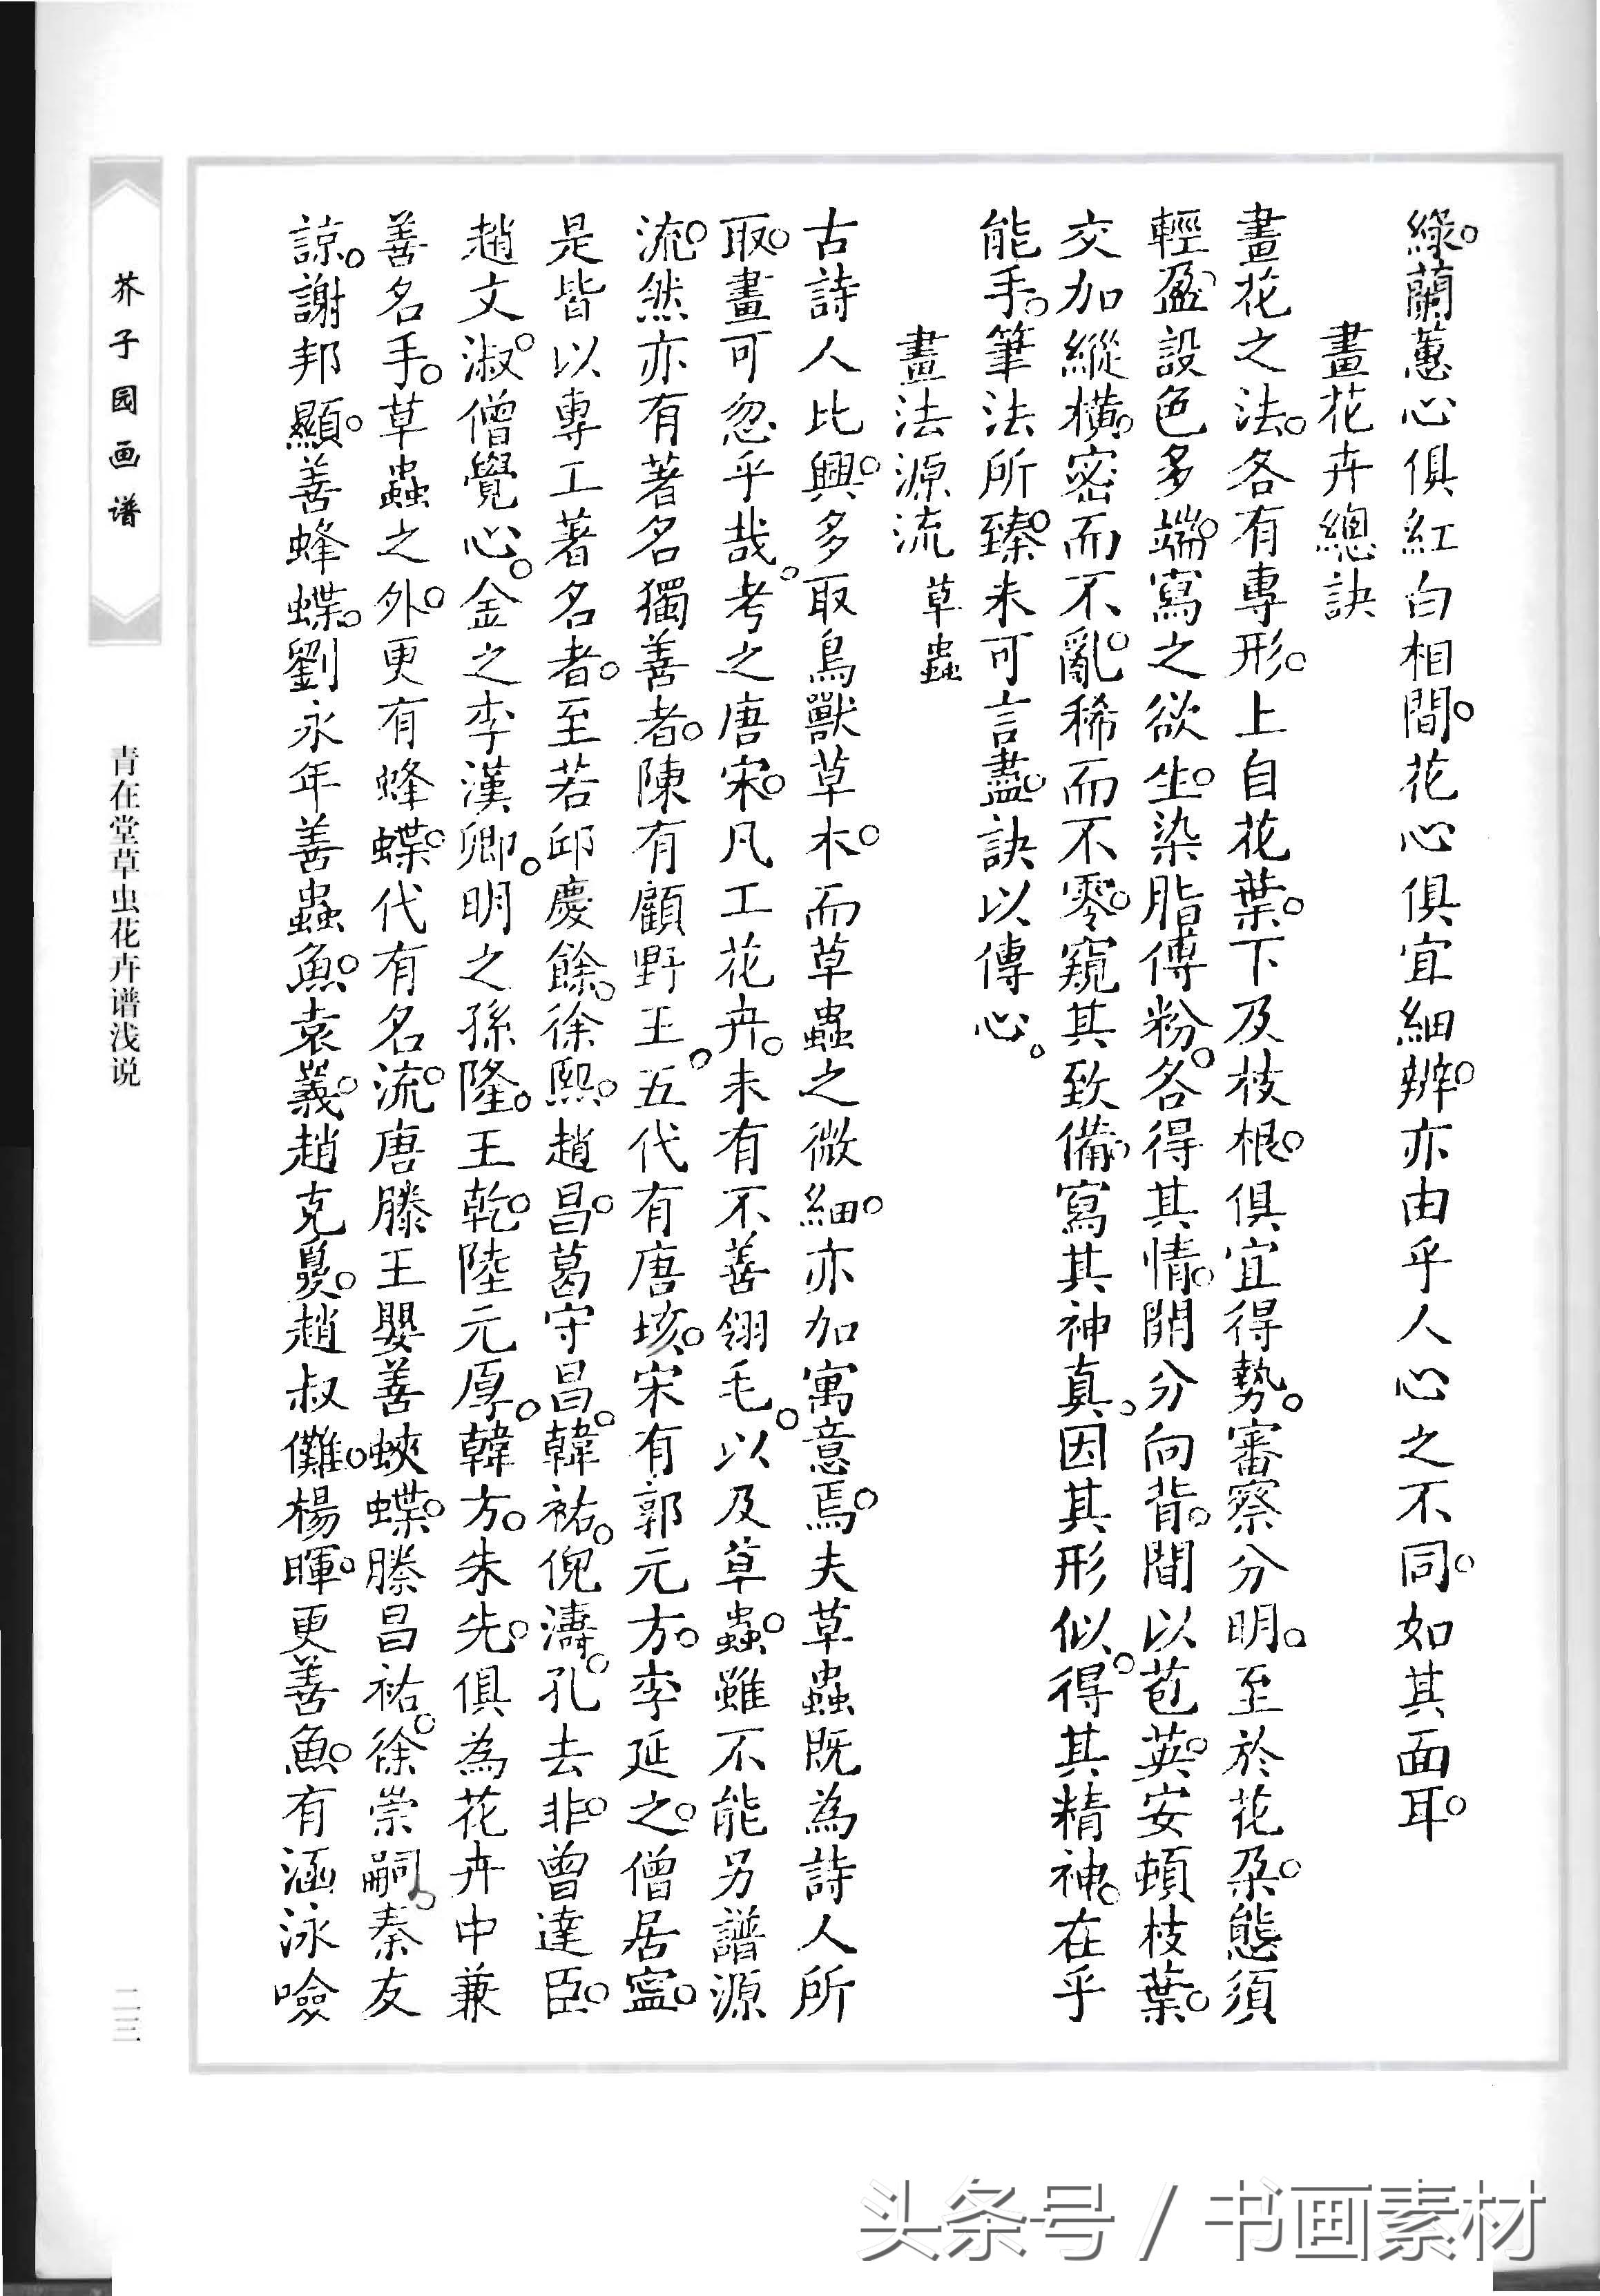 綠。蘭蕙心俱紅白相間。花心俱宜細辨。亦由乎人心之不同。如其面耳。
畫花卉總訣
畫花之法。各有專形。上自花葉。下及枝根。俱宜得勢。審察分明。至於花朶。態須
輕盈。設色多端。寫之欲生。染脂傅粉。各得其情。開分向背。間以苞英。安頓枝葉。
交加縱橫。密而不亂。稀而不零。窺其致備。寫其神真。因其形似。得其精神。在乎
能手。筆法所臻。未可言盡。訣以傳心。
畫法源流 草蟲
古詩人比興。多取鳥獸草木。而草蟲之微細。亦加寓意焉。夫草蟲既為詩人所
取。畫可忽乎哉。考之唐宋。凡工花卉。未有不善翎毛。以及草蟲。雖不能另譜源
流。然亦有著名獨善者。陳有顧野王。五代有唐垓。宋有郭元方。李延之。僧居寧。
是皆以專工著名者。至若邱慶餘。徐熙。趙昌。葛守昌。韓祐。倪濤。孔去非。曾達臣。
趙文淑。僧覺心。金之李漢卿。明之孫隆。王乾。陸元厚。韓方。朱先。俱為花卉中兼
善名手。草蟲之外。更有蜂蝶。代有名流。唐滕王嬰善蛺蝶。滕昌祐。徐崇嗣。秦友
諒。謝邦顯。善蜂蝶。劉永年善蟲魚。袁羲。趙克夐。趙叔儺。楊暉。更善魚。有涵泳噞
芥子园画谱
青在堂草虫花卉谱浅说
二三
头条号 / 书画素材